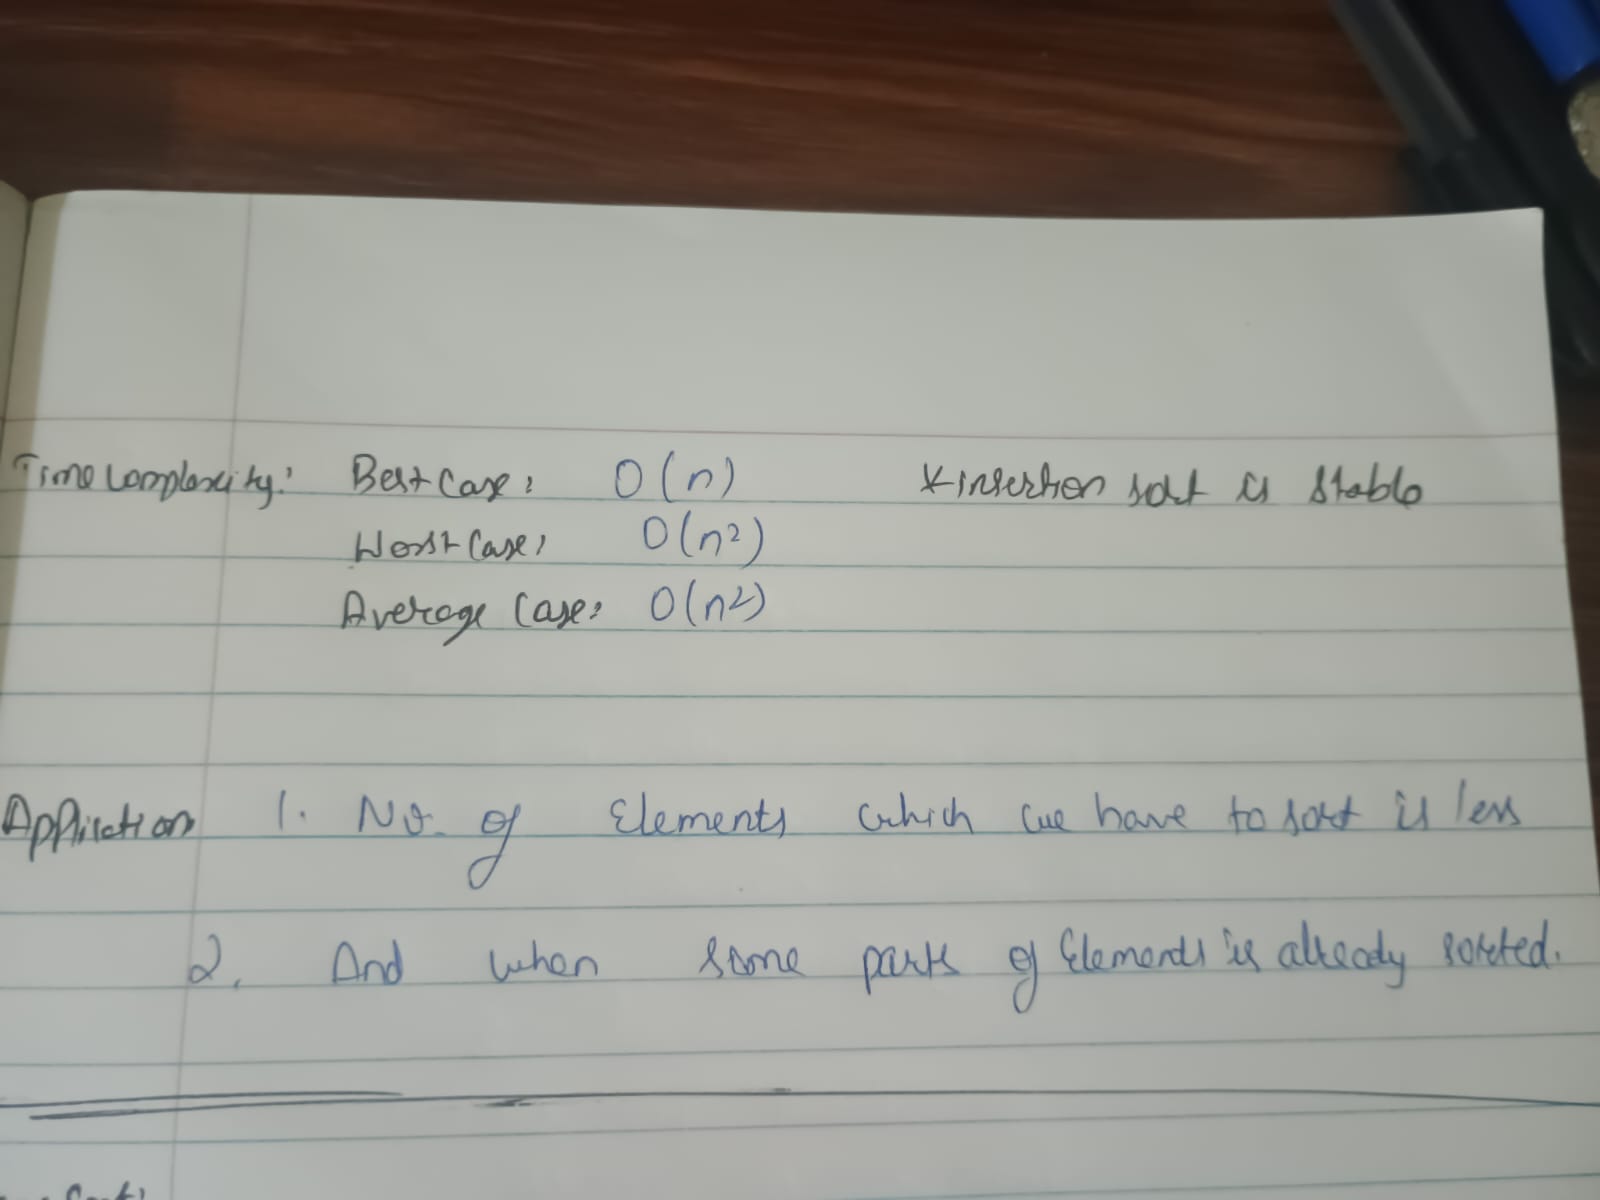 Time Complexity: Best Case: O(n) * insertion sort is stable
Worst Case: O(n²)
Average Case: O(n²)
Application 1. No. of Elements which we have to sort is less
2. And when some parts of Elements is already sorted.